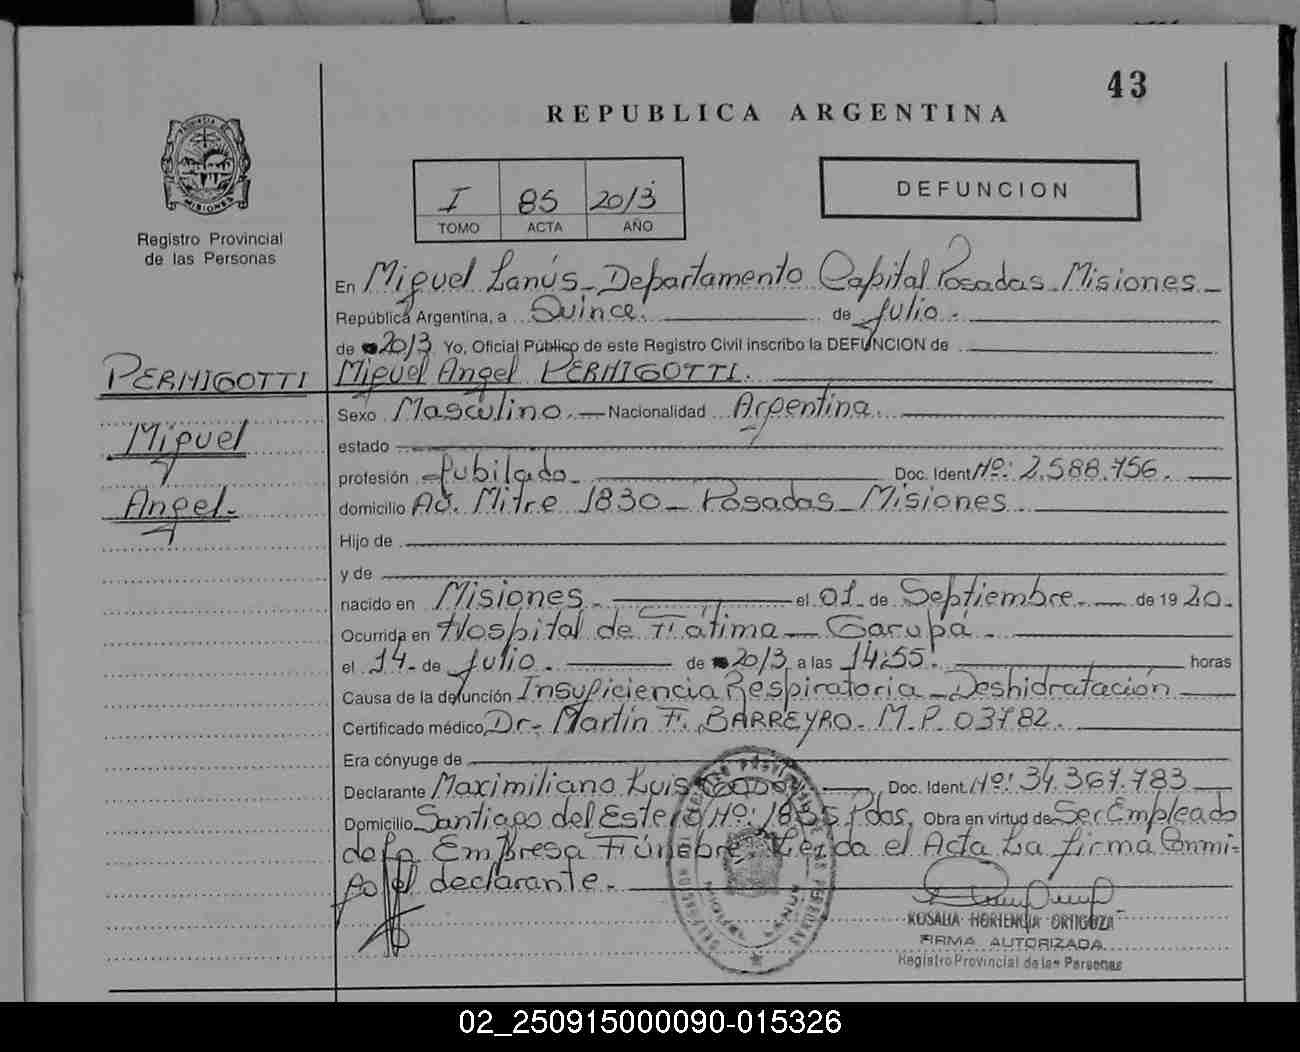 43
REPUBLICA ARGENTINA
PROVINCIA DE MISIONES
Registro Provincial
de las Personas
I 85 2013
TOMO ACTA AÑO
DEFUNCION
En Miguel Lanús - Departamento Capital Posadas - Misiones -
República Argentina, a Quince. de Julio.
de 2013 Yo, Oficial Público de este Registro Civil inscribo la DEFUNCION de
PERMIGOTTI Miguel Angel PERMIGOTTI.
Miguel
Angel.-
Sexo Masculino.- Nacionalidad Argentina.
estado
profesión Jubilado. Doc. Ident Nº: 2.588.756.
domicilio Av. Mitre 1830 - Posadas - Misiones
Hijo de
y de
nacido en Misiones. el 01. de Septiembre. de 19 20.
Ocurrida en Hospital de Fátima - Garupá.
el 14. de Julio. de 2013 a las 14:55. horas
Causa de la defunción Insuficiencia Respiratoria - Deshidratación
Certificado médico Dr. Martín F. BARREYRO. M.P. 03782.
Era cónyuge de
Declarante Maximiliano Luis Doc. Ident. Nº: 34.367.783
Domicilio Santiago del Estero Nº: 1835 Pdas. Obra en virtud de Ser Empleado
de la Empresa Fúnebre Leída el Acta La firma Conmi-
go el declarante.
ROSALIA HORTENCIA ORTIGOZA
FIRMA AUTORIZADA
Registro Provincial de las Personas
02_250915000090-015326